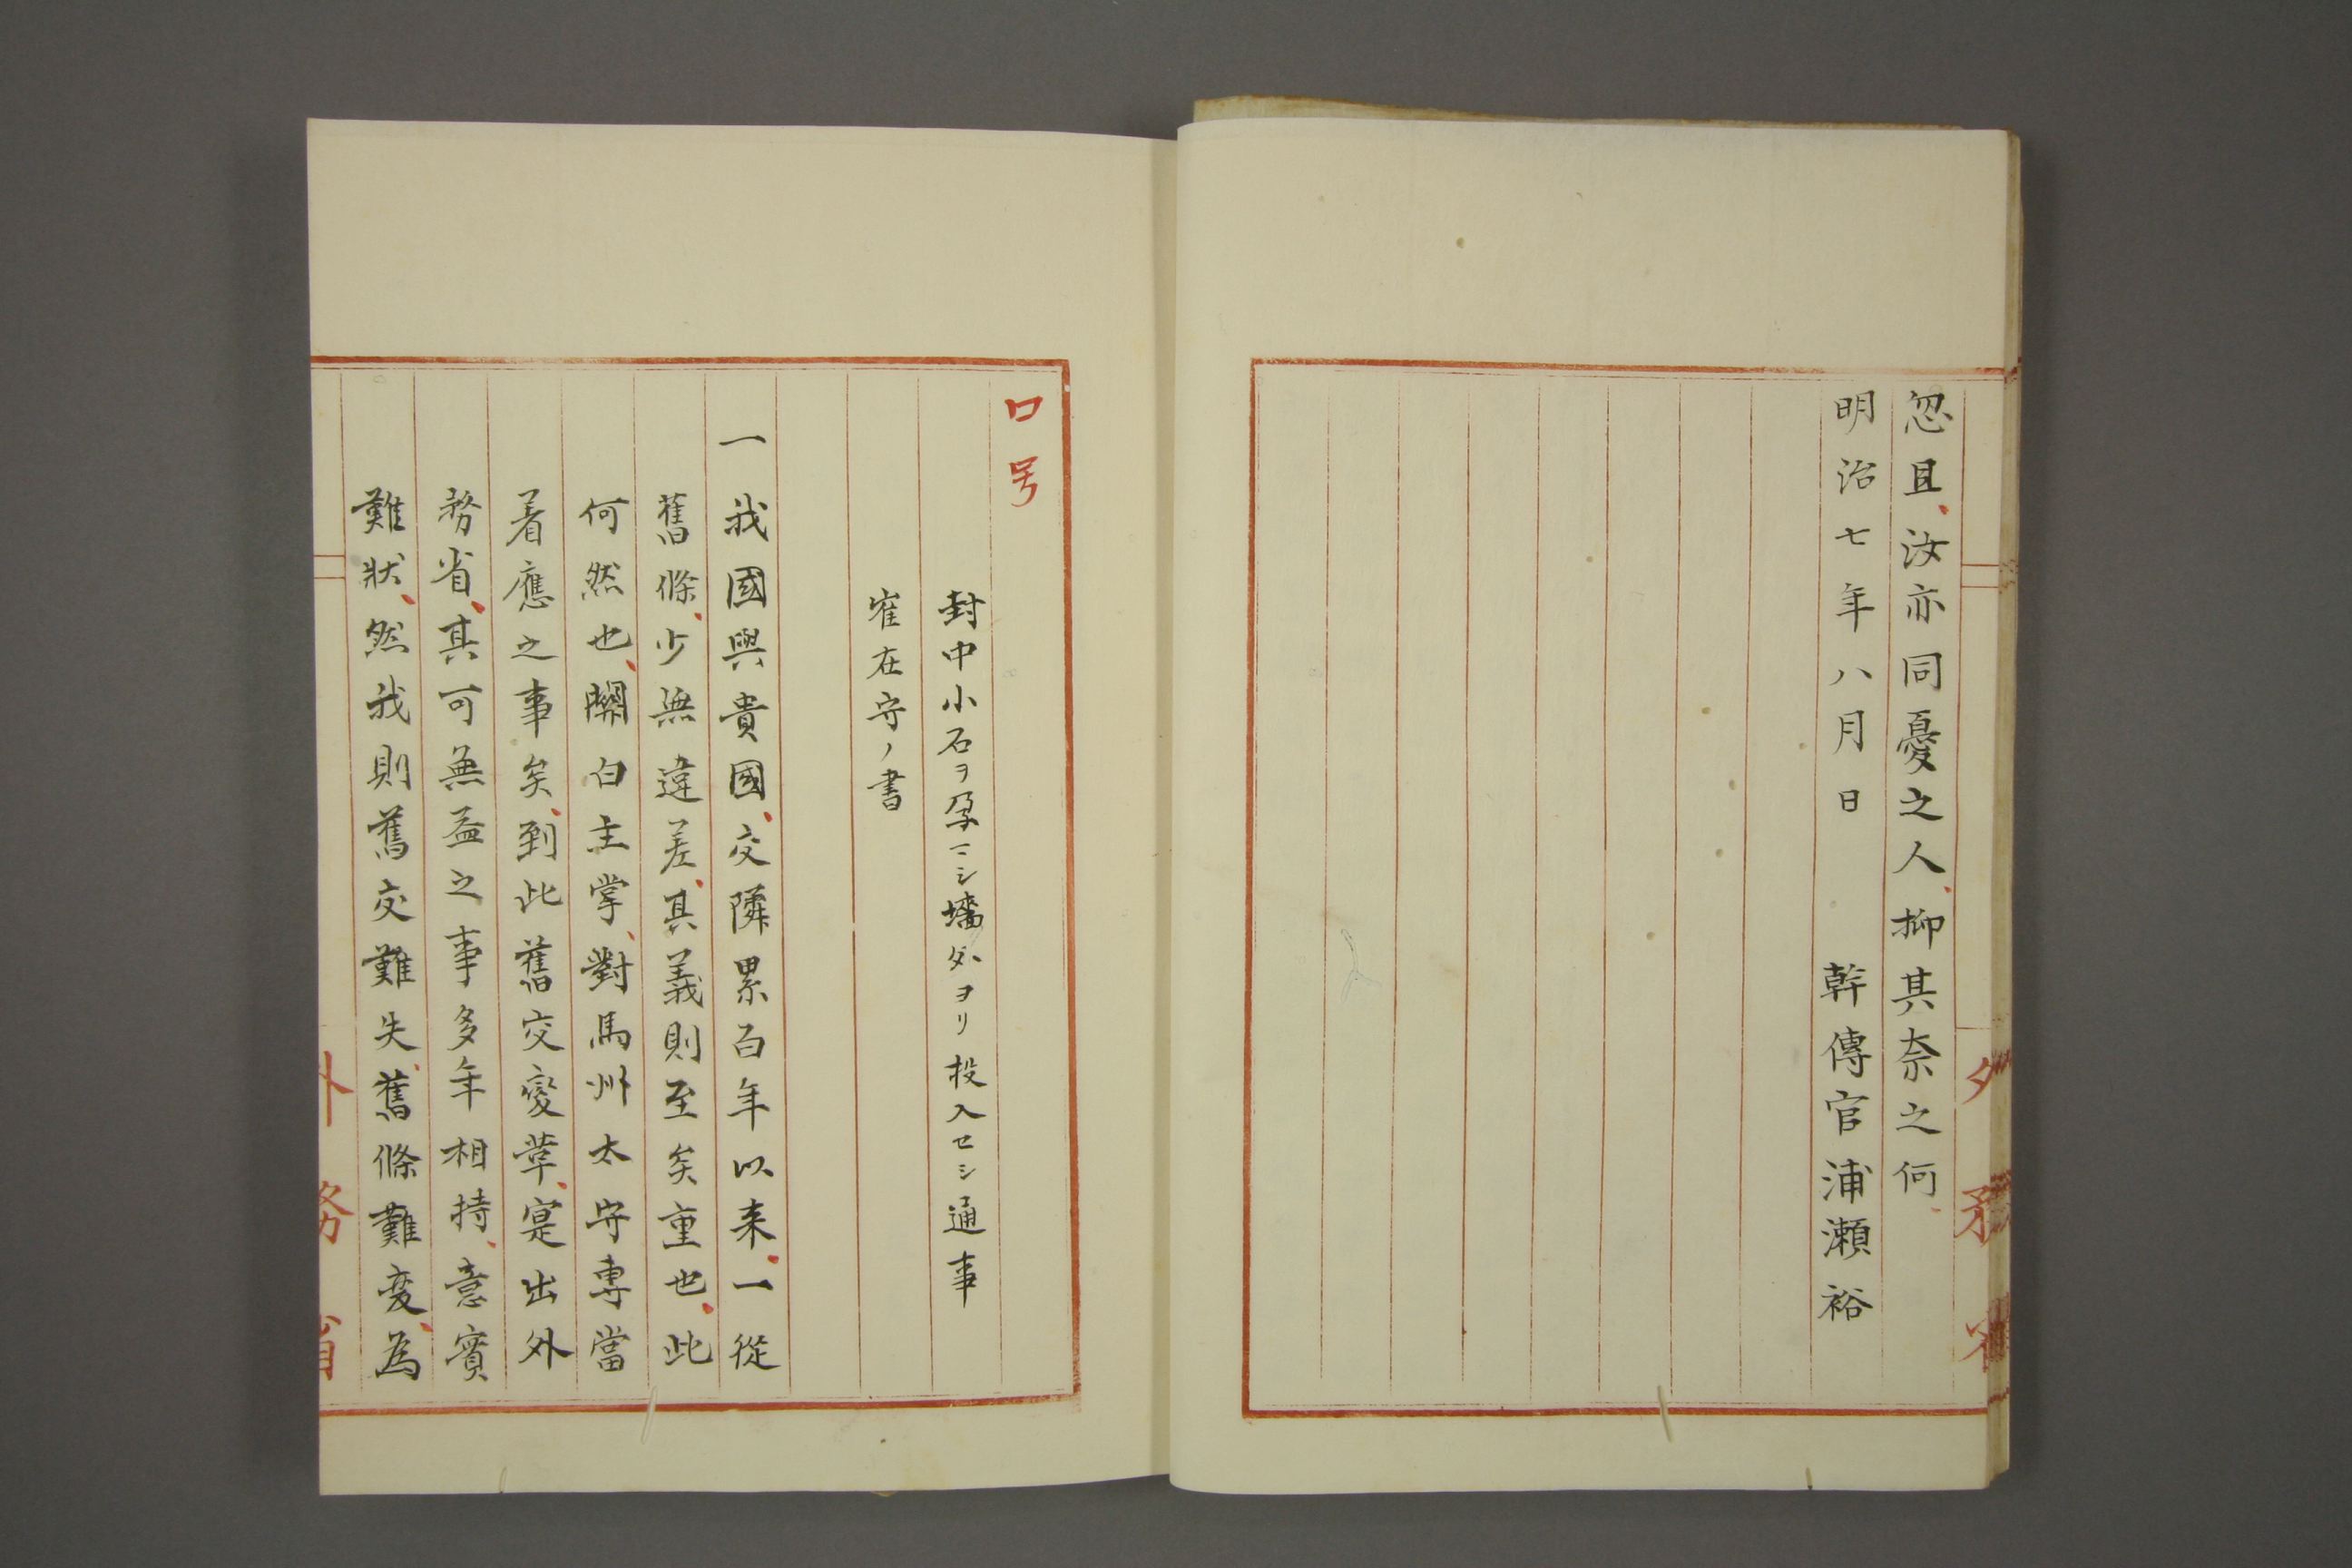 忽且、汝亦同憂之人、抑其奈之何、
明治七年八月日　幹傳官浦瀬裕
口号
封中小石ヲ孕マシ墻ダヲリ投入セシ通事
崔在守ノ書
一我國與貴國、交隣累百年以来、一從
舊條、少無違差、其義則至矣重也、此
何然也、關白主掌、對馬州太守専當
着應之事矣、到此舊交変革、寔出外
務省、其可無益之事多年相持、意實
難狀、然我則舊交難失、舊條難变、為
外務省